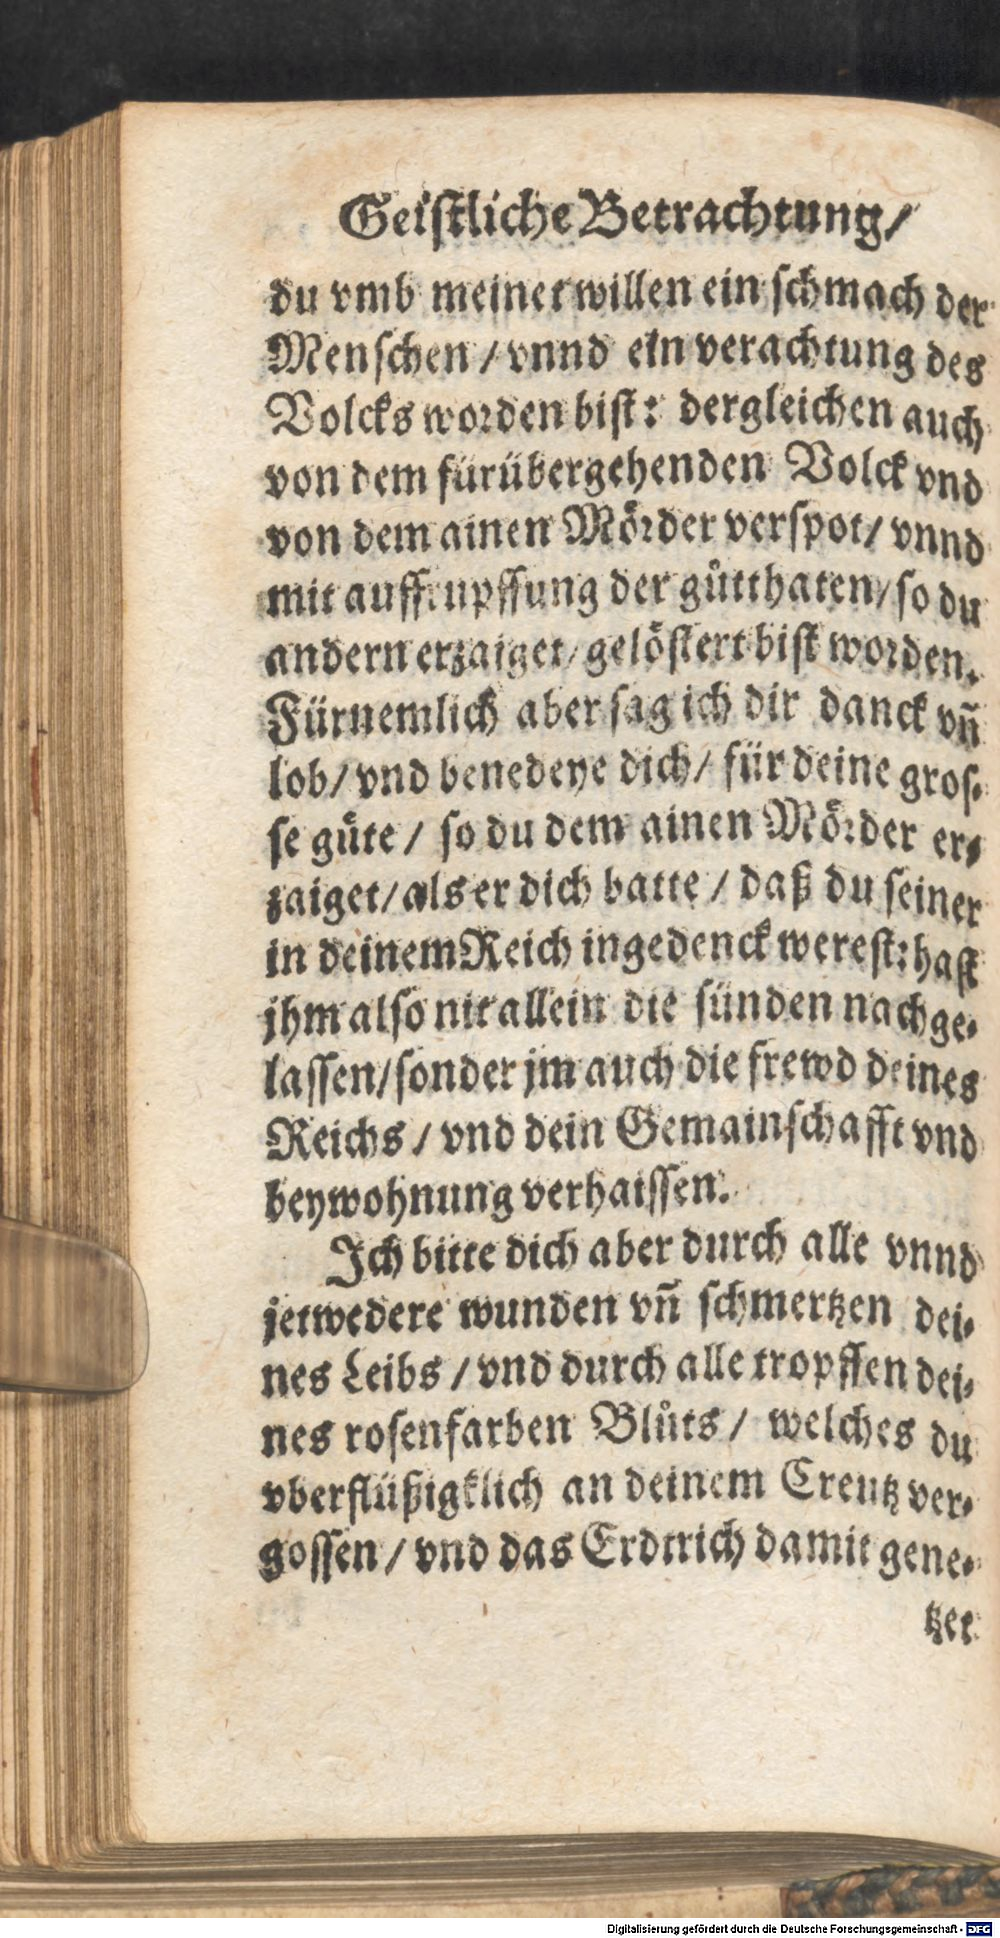 Geistliche Betrachtung/
du vmb meinet willen ein schmach der
Menschen / vnnd ein verachtung des
Volcks worden bist: dergleichen auch
von dem fürübergehenden Volck vnd
von dem ainen Mörder verspot/ vnnd
mit auffrupffung der gůtthaten/ so du
andern erzaiget/ gelöstert bist worden.
Fürnemlich aber sag ich dir danck vñ
lob/ vnd benedeye dich/ für deine gros-
se güte / so du dem ainen Mörder er-
zaiget/ als er dich batte / daß du seiner
in deinem Reich ingedenck werest: hast
jhm also nit allein die sünden nachge-
lassen/ sonder jm auch die frewd deines
Reichs / vnd dein Gemainschafft vnd
beywohnung verhaissen.
Ich bitte dich aber durch alle vnnd
jetwedere wunden vñ schmertzen dei-
nes Leibs / vnd durch alle tropffen dei-
nes rosenfarben Blůts / welches du
vberflüßigklich an deinem Creutz ver-
gossen / vnd das Erdtrich damit gene-
tzet
Digitalisierung gefördert durch die Deutsche Forschungsgemeinschaft - DFG